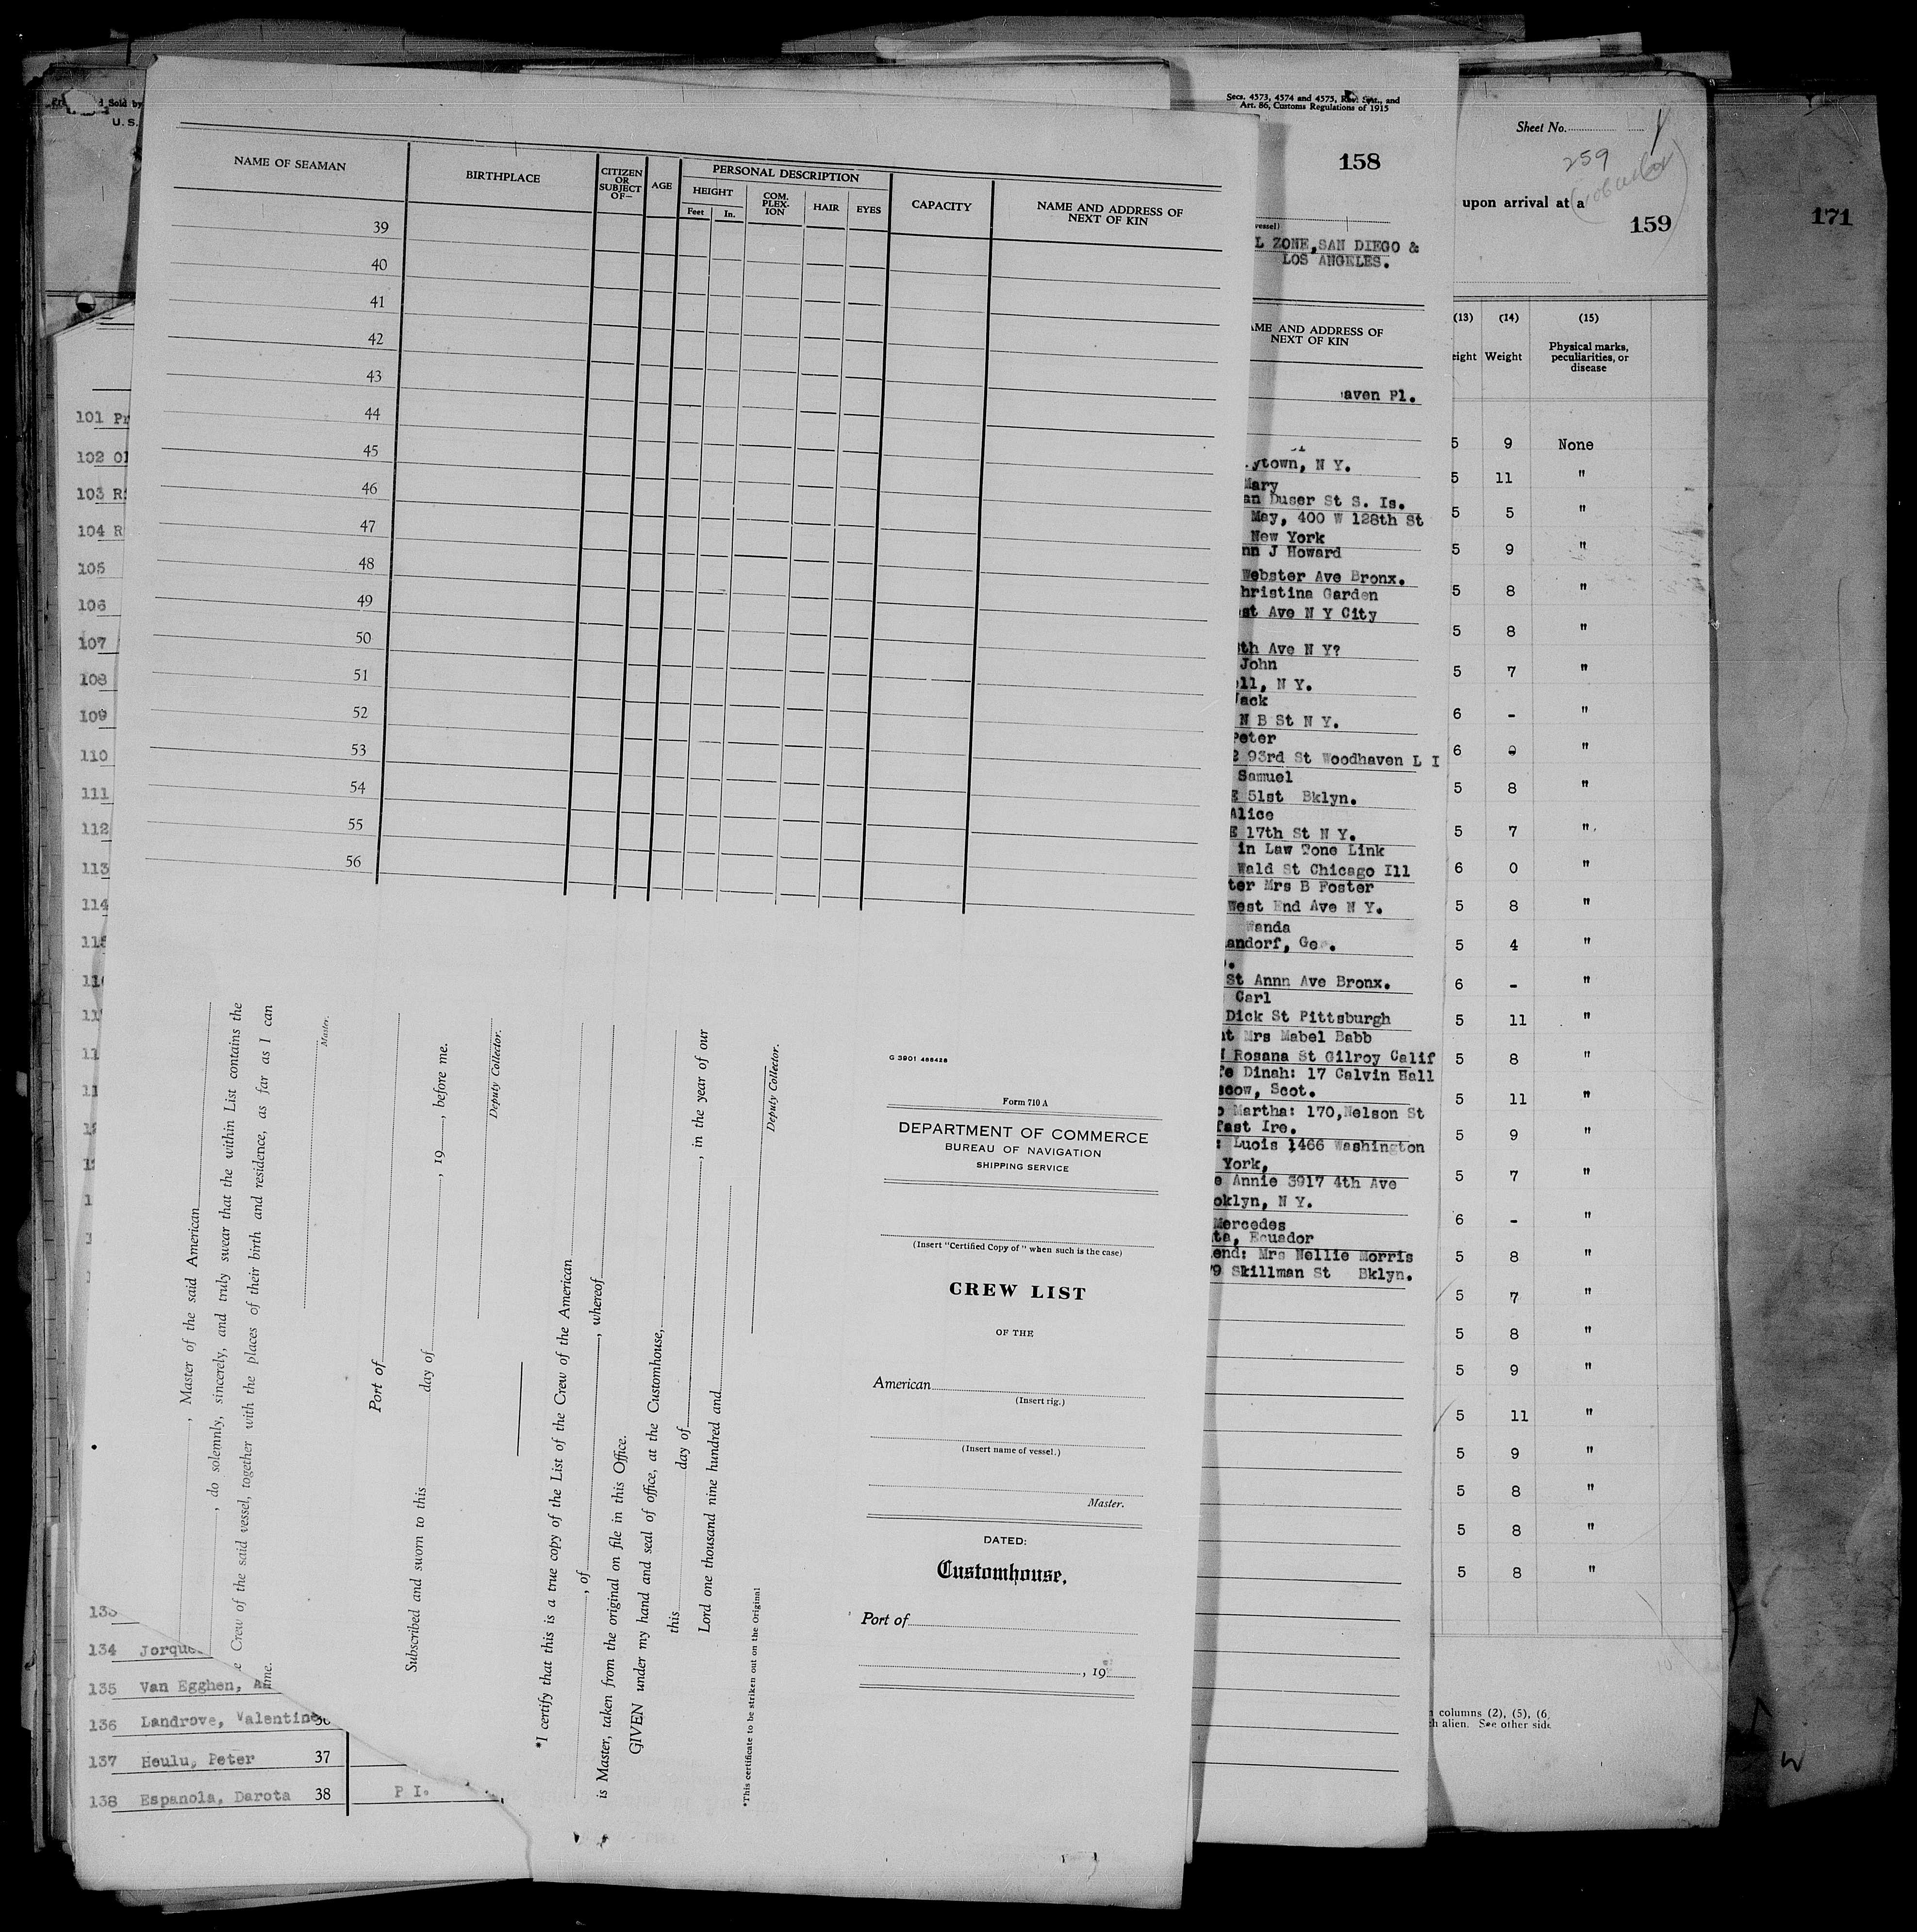 d Sold by
U. S.
NAME OF SEAMAN
BIRTHPLACE
CITIZEN OR SUBJECT OF—
AGE
PERSONAL DESCRIPTION
HEIGHT
Feet
In.
COM. PLEX- ION
HAIR
EYES
CAPACITY
NAME AND ADDRESS OF NEXT OF KIN
39
40
41
42
43
44
45
46
47
48
49
50
51
52
53
54
55
56
101 Pr
102 Ol
103 R
104 R
105
106
107
108
109
110
111
112
113
114
134 Jorque
135 Van Egghen, A
136 Landrove, Valentine
137 Heulu, Peter 37
138 Espanola, Darota 38 P I.
, Master of the said American
, do solemnly, sincerely, and truly swear that the within List contains the
Crew of the said vessel, together with the places of their birth and residence, as far as I can
Master.
Port of
Subscribed and sworn to this day of , 19 , before me.
Deputy Collector.
*I certify that this is a true copy of the List of the Crew of the American
, of , whereof
is Master, taken from the original on file in this Office.
GIVEN under my hand and seal of office, at the Customhouse,
this day of , in the year of our
Lord one thousand nine hundred and
Deputy Collector.
*This certificate to be striken out on the original
G 3901 488428
Form 710 A
DEPARTMENT OF COMMERCE
BUREAU OF NAVIGATION
SHIPPING SERVICE
(Insert "Certified Copy of" when such is the case)
CREW LIST
OF THE
American
(Insert rig.)
(Insert name of vessel.)
Master.
DATED:
Customhouse,
Port of
, 19
Secs. 4573, 4574 and 4575, Rev. Stat., and
Art. 86, Customs Regulations of 1915
158
vessel)
L ZONE, SAN DIEGO &
LOS ANGELES.
AME AND ADDRESS OF
NEXT OF KIN
aven Pl.
ytown, N Y.
Mary
an Duser St S. Is.
May, 400 W 128th St
New York
nn J Howard
Webster Ave Bronx.
hristina Garden
st Ave N Y City
th Ave N Y?
John
ll, N Y.
Jack
N B St N Y.
Peter
2 93rd St Woodhaven L I
Samuel
E 51st Bklyn.
Alice
E 17th St N Y.
in Law Tone Link
Wald St Chicago Ill
ter Mrs B Foster
West End Ave N Y.
Wanda
andorf, Ge .
St Annn Ave Bronx.
Carl
Dick St Pittsburgh
t Mrs Mabel Babb
Rosana St Gilroy Calif
fe Dinah: 17 Calvin Hall
scow, Scot.
o Martha: 170,Nelson St
fast Ire.
: Luois 1466 Washington
York,
e Annie 3917 4th Ave
oklyn, N Y.
Mercedes
ta, Ecuador
end: Mrs Nellie Morris
79 Skillman St Bklyn.
Sheet No.
259
upon arrival at a
159
171
(13) (14) (15)
eight Weight Physical marks, peculiarities, or disease
5 9 None
5 11 "
5 5 "
5 9 "
5 8 "
5 8 "
5 7 "
6 - "
6 "
5 8 "
5 7 "
6 0 "
5 8 "
5 4 "
6 - "
5 11 "
5 8 "
5 11 "
5 9 "
5 7 "
6 - "
5 8 "
5 7 "
5 8 "
5 9 "
5 11 "
5 9 "
5 8 "
5 8 "
5 8 "
columns (2), (5), (6
h alien. See other side